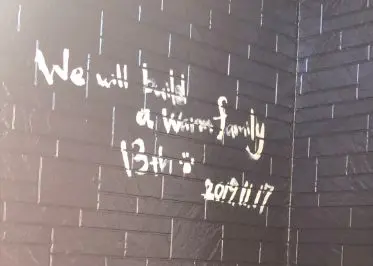 We will build
a warm family
13th
2019.11.17